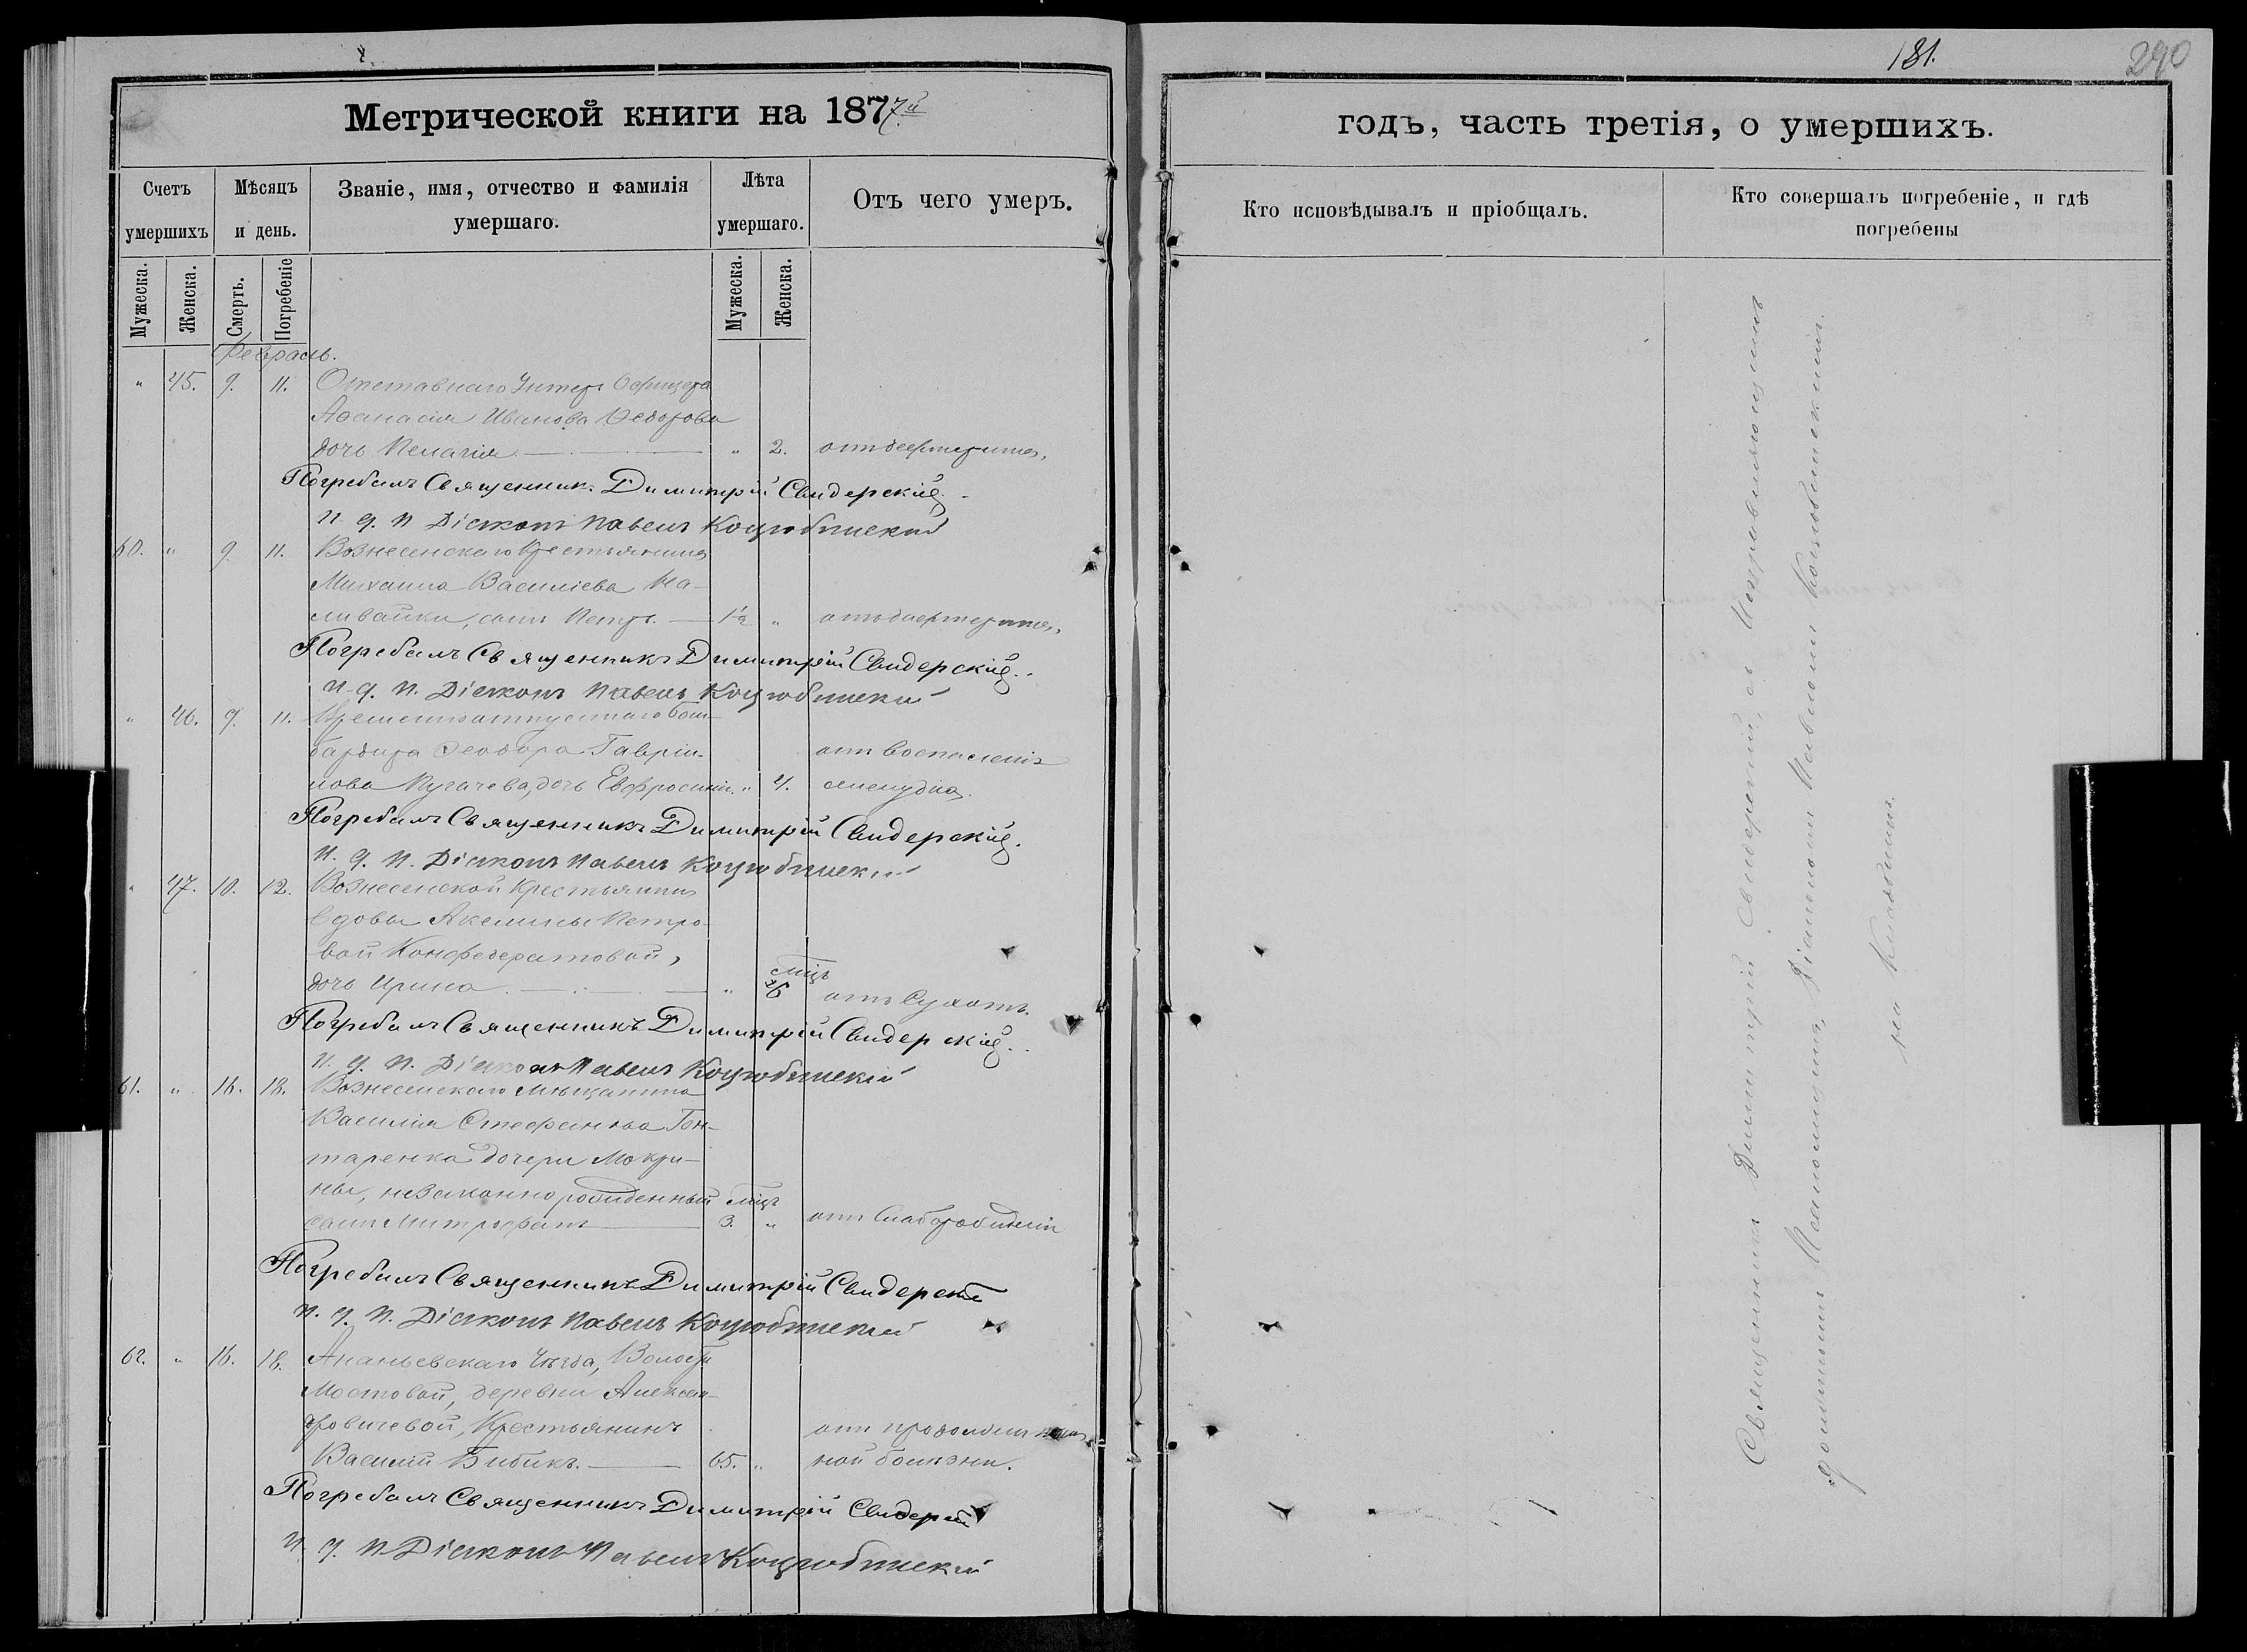 Метрической книги на 1877й
Счетъ умершихъ
Мѣсяцъ и день.
Званіе, имя, отчество и фамилія умершаго.
Лѣта умершаго.
Отъ чего умеръ.
Мужеска.
Женска.
Смерть.
Погребеніе
Мужеска.
Женска.
Февраль.
" 45. 9. 11. Отставнаго Унтеръ Офицера
Аѳанасія Иванова Ѳедорова
дочь Пелагія " 2. отъ дифтерита.
Погребалъ Священникъ Димитрій Свидерскій.
И. д. П. Діаконъ Павелъ Коцюбинскій
60. " 9. 11. Вознесенскаго Крестьянина
Михаила Василіева На-
ливайки, сынъ Петръ 1½ " отъ дифтерита.
Погребалъ Священникъ Димитрій Свидерскій.
И. д. П. Діаконъ Павелъ Коцюбинскій
" 46. 9. 11. Временноотпускнаго бом-
бардира Ѳеодора Гаврі-
лова Пугачева, дочь Евфросинія " 4. отъ воспаленія
желудка.
Погребалъ Священникъ Димитрій Свидерскій.
И. д. П. Діаконъ Павелъ Коцюбинскій
" 47. 10. 12. Вознесенской Крестьянки
Вдовы Акелины Петро-
вой Конфедератовой,
дочь Ирина " мѣц. 6 отъ Сухотъ.
Погребалъ Священникъ Димитрій Свидерскій.
И. д. П. Діаконъ Павелъ Коцюбинскій
61. " 16. 18. Вознесенскаго Мѣщанина
Василія Стефанова Гон-
таренка дочери Мокри-
ны, незаконнорожденный мѣц.
сынъ Митрофанъ 3. " отъ Слаборожденія
Погребалъ Священникъ Димитрій Свидерскій
И. д. П. Діаконъ Павелъ Коцюбинскій
62. " 16. 18. Ананьевскаго Уѣзда, Волости
Мостовой, деревни Александ-
ровичевой, Крестьянинъ отъ продолжитель-
Василій Бибикъ. 65. " ной болѣзни.
Погребалъ Священникъ Димитрій Свидерскій
И. д. П. Діаконъ Павелъ Коцюбинскій
181.
290
годъ, часть третія, о умершихъ.
Кто исповѣдывалъ и пріобщалъ.
Кто совершалъ погребеніе, и гдѣ погребены
Священникъ Димитрій Свидерскій, съ Исправляющимъ
должность Псаломщика, Діакономъ Павломъ Коцюбинскимъ.
на Кладбищѣ.